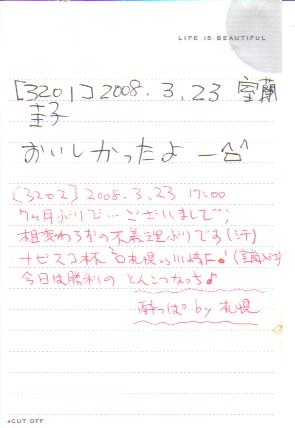 LIFE IS BEAUTIFUL
[3201] 2008.3.23 室蘭
圭子
おいしかったよ ー^ô^
[3202] 2008.3.23 17:00
7ヶ月ぶりで…ございまして”;
相変わらずの不義理ぶりです(汗)
ナビスコ杯 札幌vs川崎F。!(室蘭入江)
今日は勝利の とんこつなっち♪
酔っぱ° by 札幌
◂CUT OFF